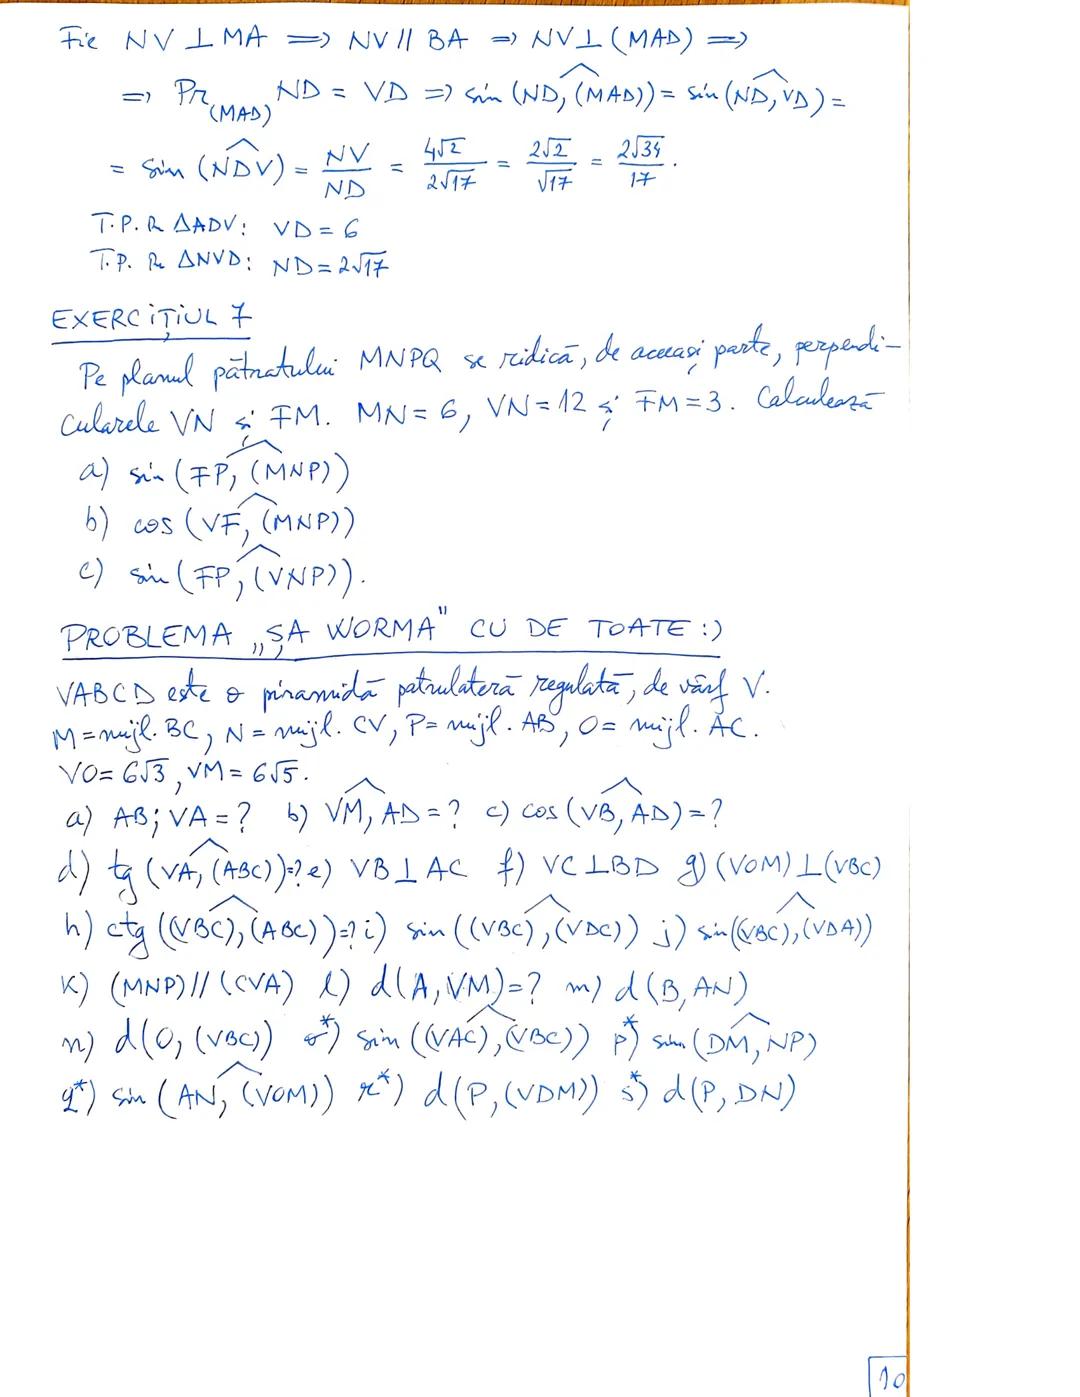 Fie NV ⊥ MA ⟹ NV ∥ BA ⟹ NV ⊥ (MAD) ⟹
⟹ Pr(MAD) ND = VD ⟹ sin (ND, (MAD)) = sin (ND, VD) =
= sin (NDV) = NV/ND = 4√2/2√17 = 2√2/√17 = 2√34/17.
T.P. în ΔADV: VD = 6
T.P. în ΔNVD: ND = 2√17
EXERCIȚIUL 7
Pe planul pătratului MNPQ se ridică, de aceeași parte, perpendi-
cularele VN și FM. MN = 6, VN = 12 și FM = 3. Calculează
a) sin (FP, (MNP))
b) cos (VF, (MNP))
c) sin (FP, (VNP)).
PROBLEMA „ȘA WORMA" CU DE TOATE :)
VABCD este o piramidă patrulateră regulată, de vârf V.
M = mijl. BC, N = mijl. CV, P = mijl. AB, O = mijl. AC.
VO = 6√3, VM = 6√5.
a) AB; VA = ? b) VM, AD = ? c) cos (VB, AD) = ?
d) tg (VA, (ABC)) = ? e) VB ⊥ AC f) VC ⊥ BD g) (VOM) ⊥ (VBC)
h) ctg ((VBC), (ABC)) = ? i) sin ((VBC), (VDC)) j) sin ((VBC), (VDA))
k) (MNP) ∥ (CVA) l) d(A, VM) = ? m) d(B, AN)
n) d(O, (VBC)) o*) sin ((VAC), (VBC)) p*) sin (DM, NP)
q*) sin (AN, (VOM)) r*) d(P, (VDM)) s*) d(P, DN)
10